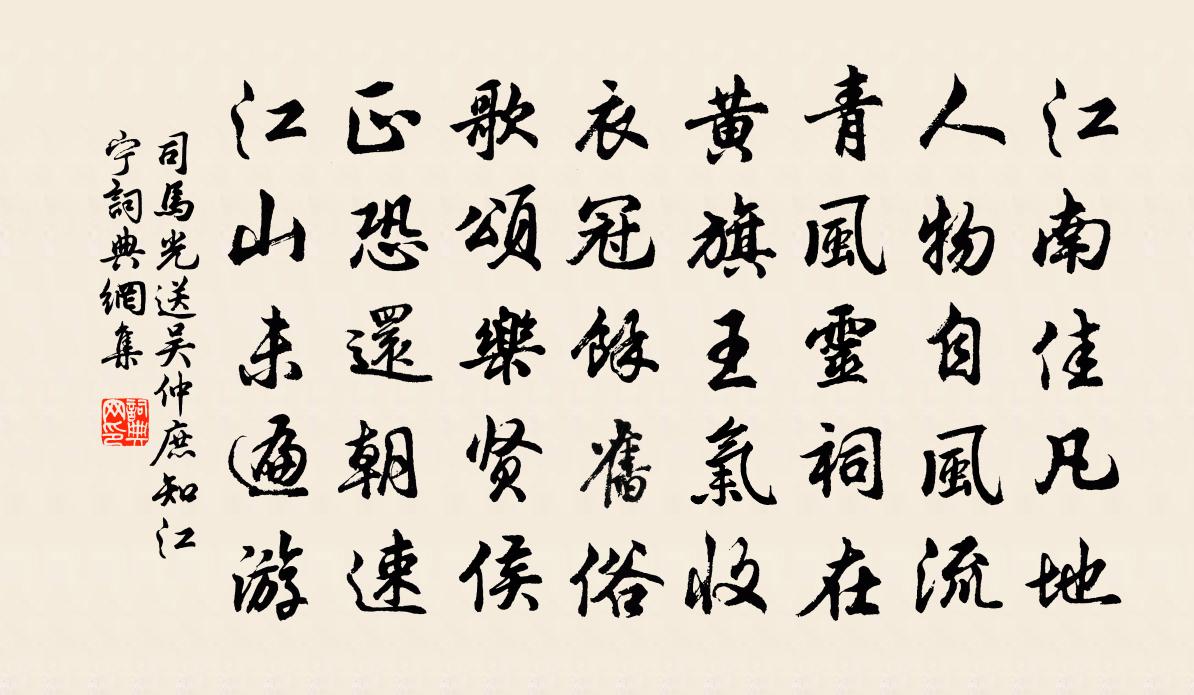 江南佳凡地
人物自風流
青風靈祠在
黄旗王氣收
衣冠餘舊俗
歌頌樂贤侯
正恐還朝速
江山未遍游
司馬光送吴仲庶知江
宁詞典網集
詞典
网印